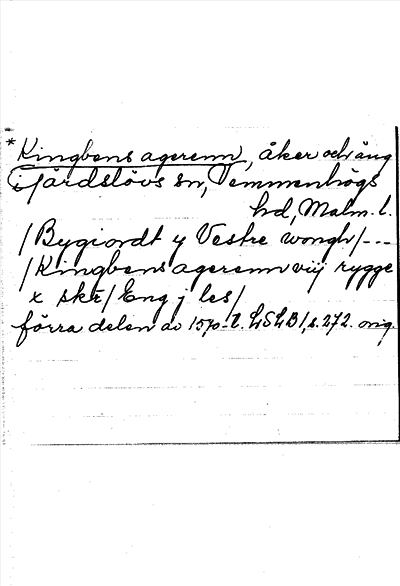 *Kingbens agerenn, åker och äng
i Jårdslövs sn, Vemmenhögs
hd, Malm. l.
/Bygiordt y Vestre wongh/---
/Kingbens agerenn viij rygge
x skr/ Eng j les/
förra delen av 1570-t. LSLB/, s. 272. orig.